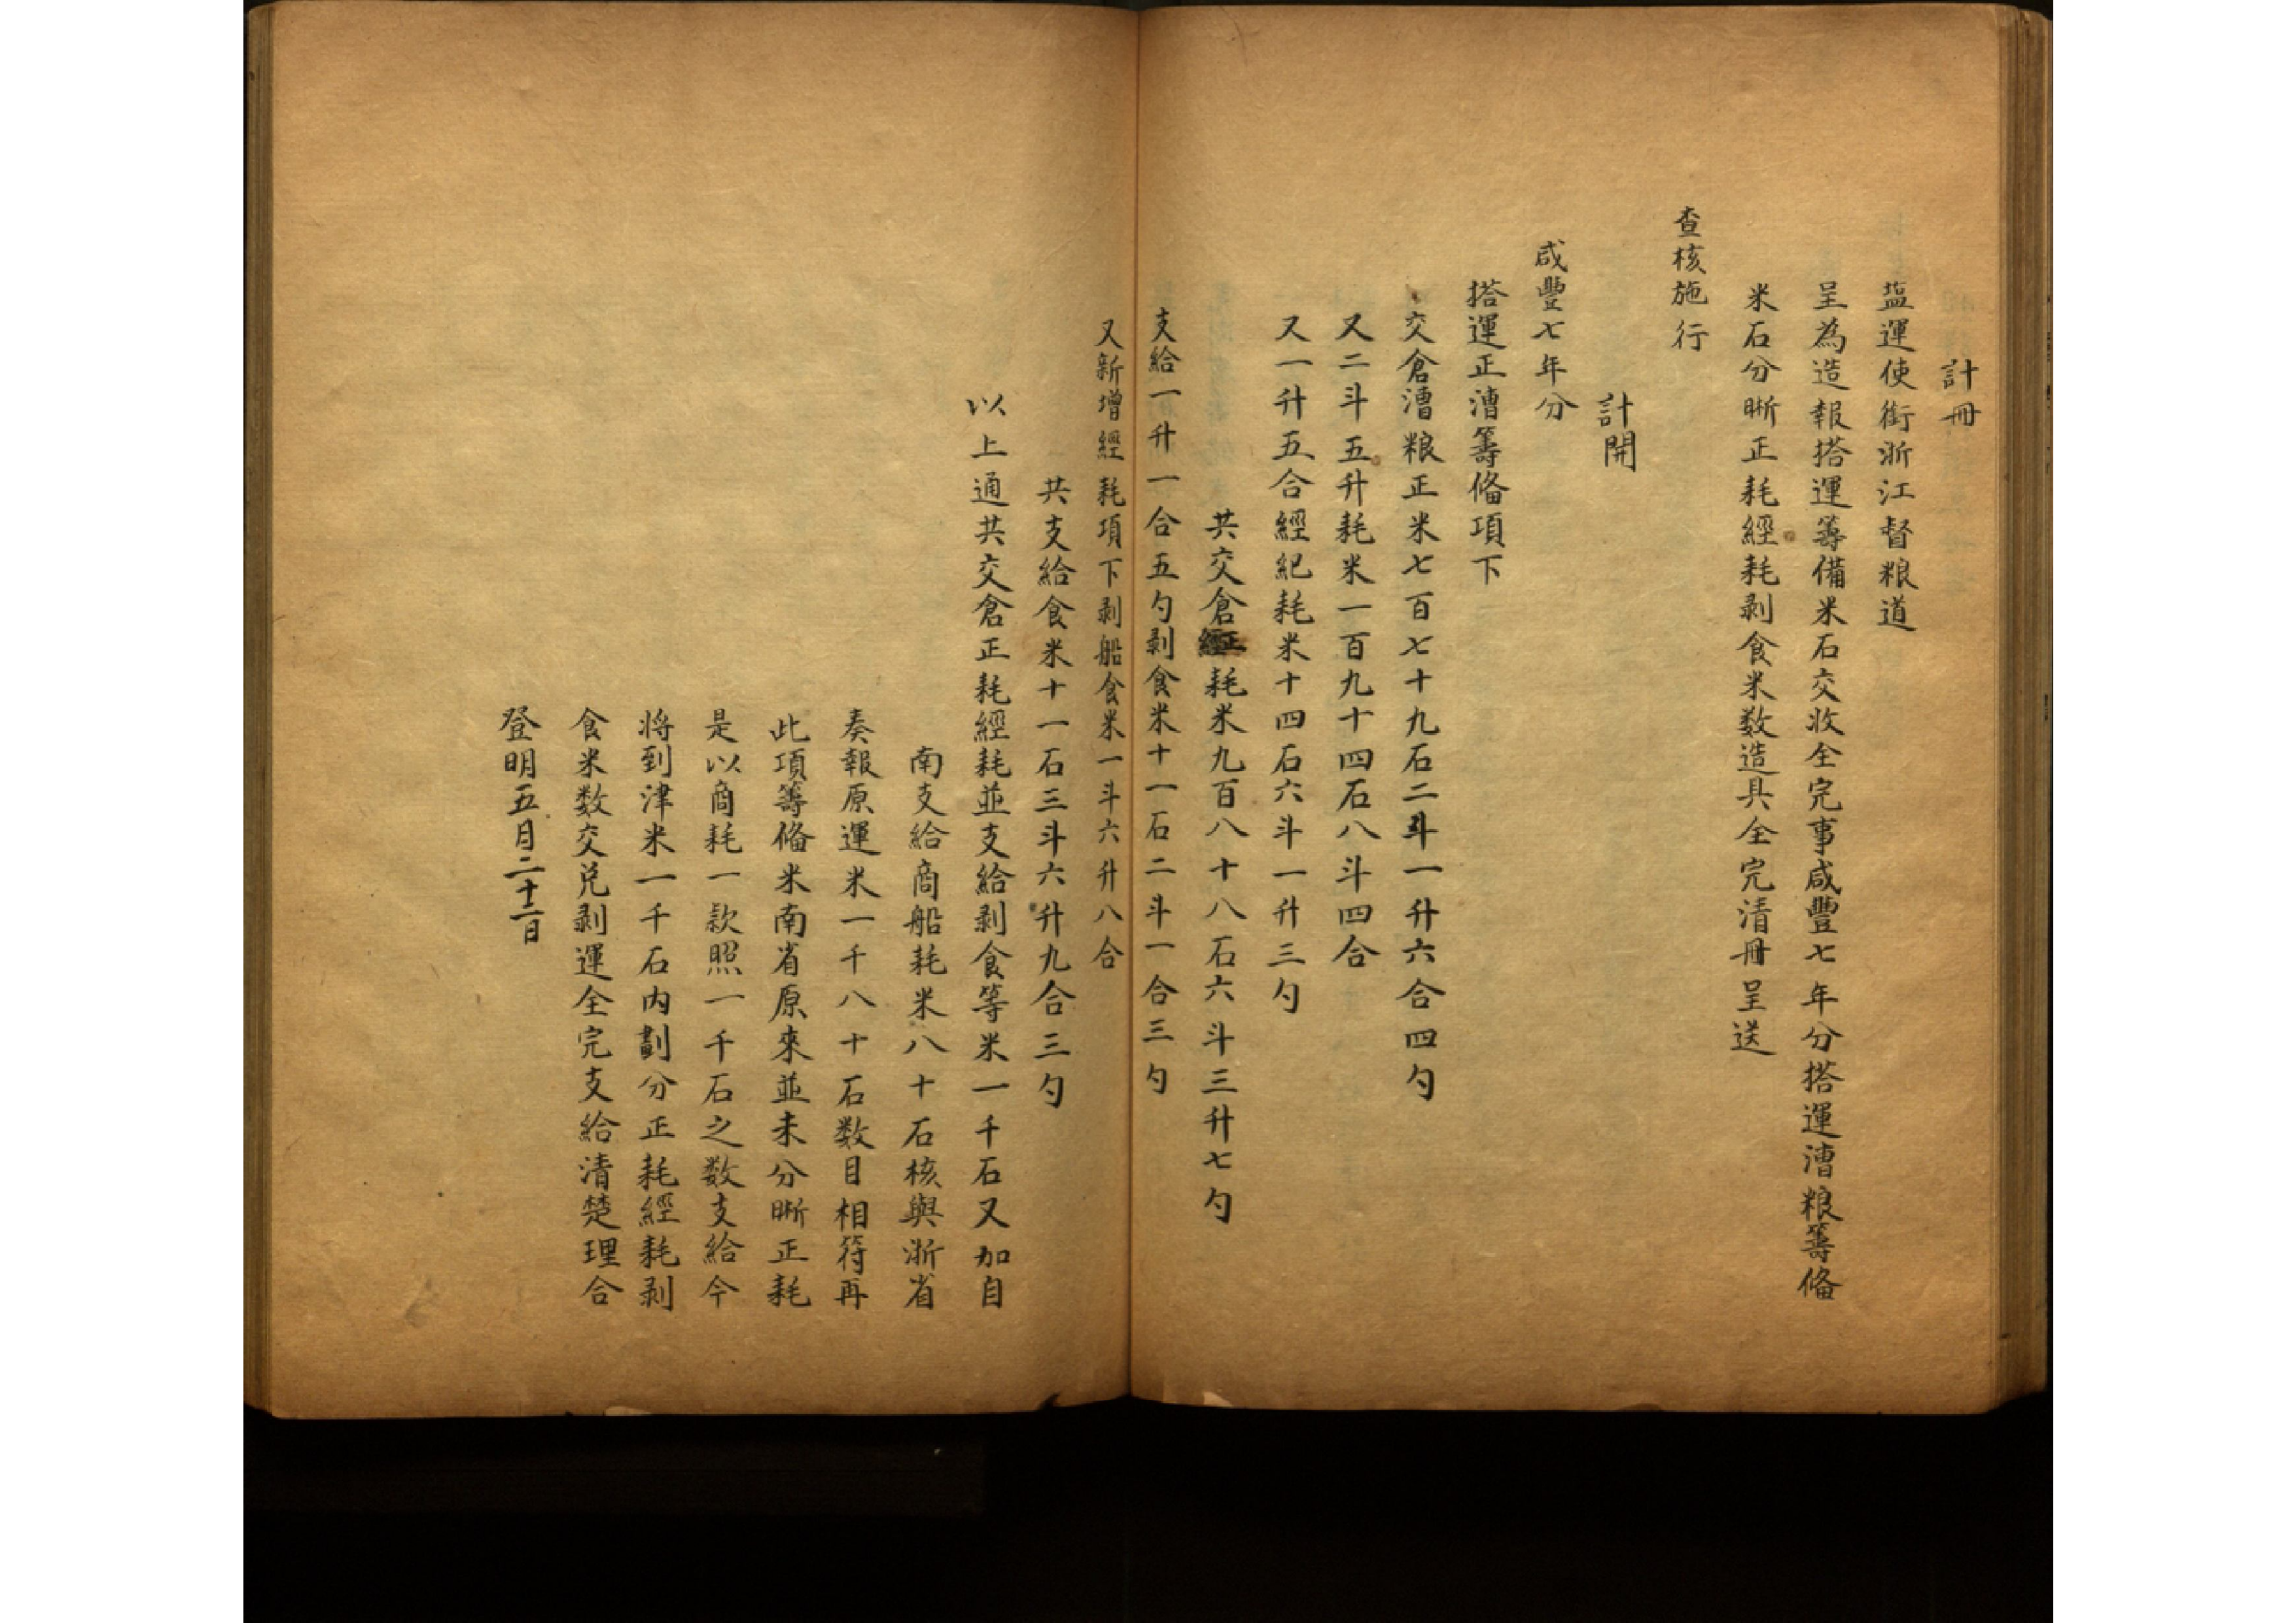 計冊
塩運使銜浙江督粮道
呈為造報搭運籌備米石交收全完事咸豐七年分搭運漕粮籌俻
米石分晰正耗經耗剥食米数造具全完清冊呈送
查核施行
計開
咸豐七年分
搭運正漕籌俻項下
交倉漕粮正米七百七十九石二斗一升六合四勺
又二斗五升耗米一百九十四石八斗四合
又一升五合經紀耗米十四石六斗一升三勺
共交倉正耗米九百八十八石六斗三升七勺
支給一升一合五勺剥食米十一石二斗一合三勺
又新增經耗項下剥船食米一斗六升八合
共支給食米十一石三斗六升九合三勺
以上通共交倉正耗經耗並支給剥食等米一千石又加自
南支給商船耗米八十石核與浙省
奏報原運米一千八十石数目相符再
此項籌俻米南省原來並未分晰正耗
是以商耗一款照一千石之数支給今
将到津米一千石内劃分正耗經耗剥
食米数交兑剥運全完支給清楚理合
登明五月二十二日